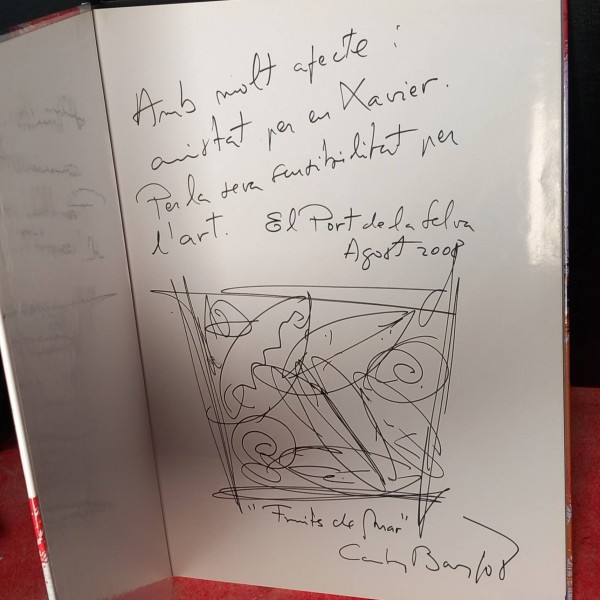 Amb molt afecte i
amistat per en Xavier.
Per la seva sensibilitat per
l'art. El Port de la Selva
Agost 2008
"Fruits de Mar"
08